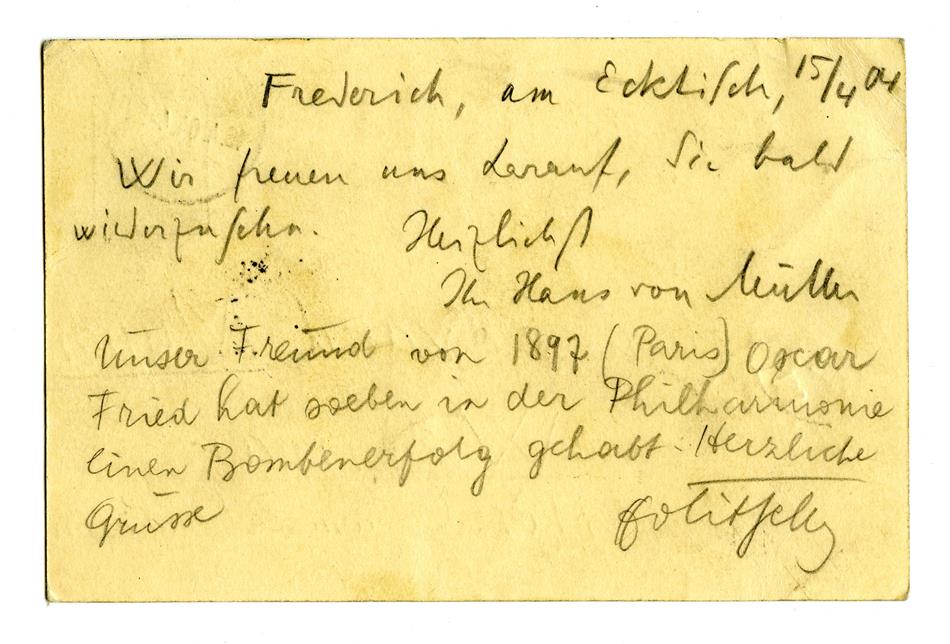 Frederich, am Ecktisch, 15/4 04
Wir freuen uns darauf, Sie bald
wiederzusehn. Herzlichst
Ihr Hans von Müller
Unser Freund von 1897 (Paris) Oscar
Fried hat soeben in der Philharmonie
einen Bombenerfolg gehabt. Herzliche
Grüsse Holitscher